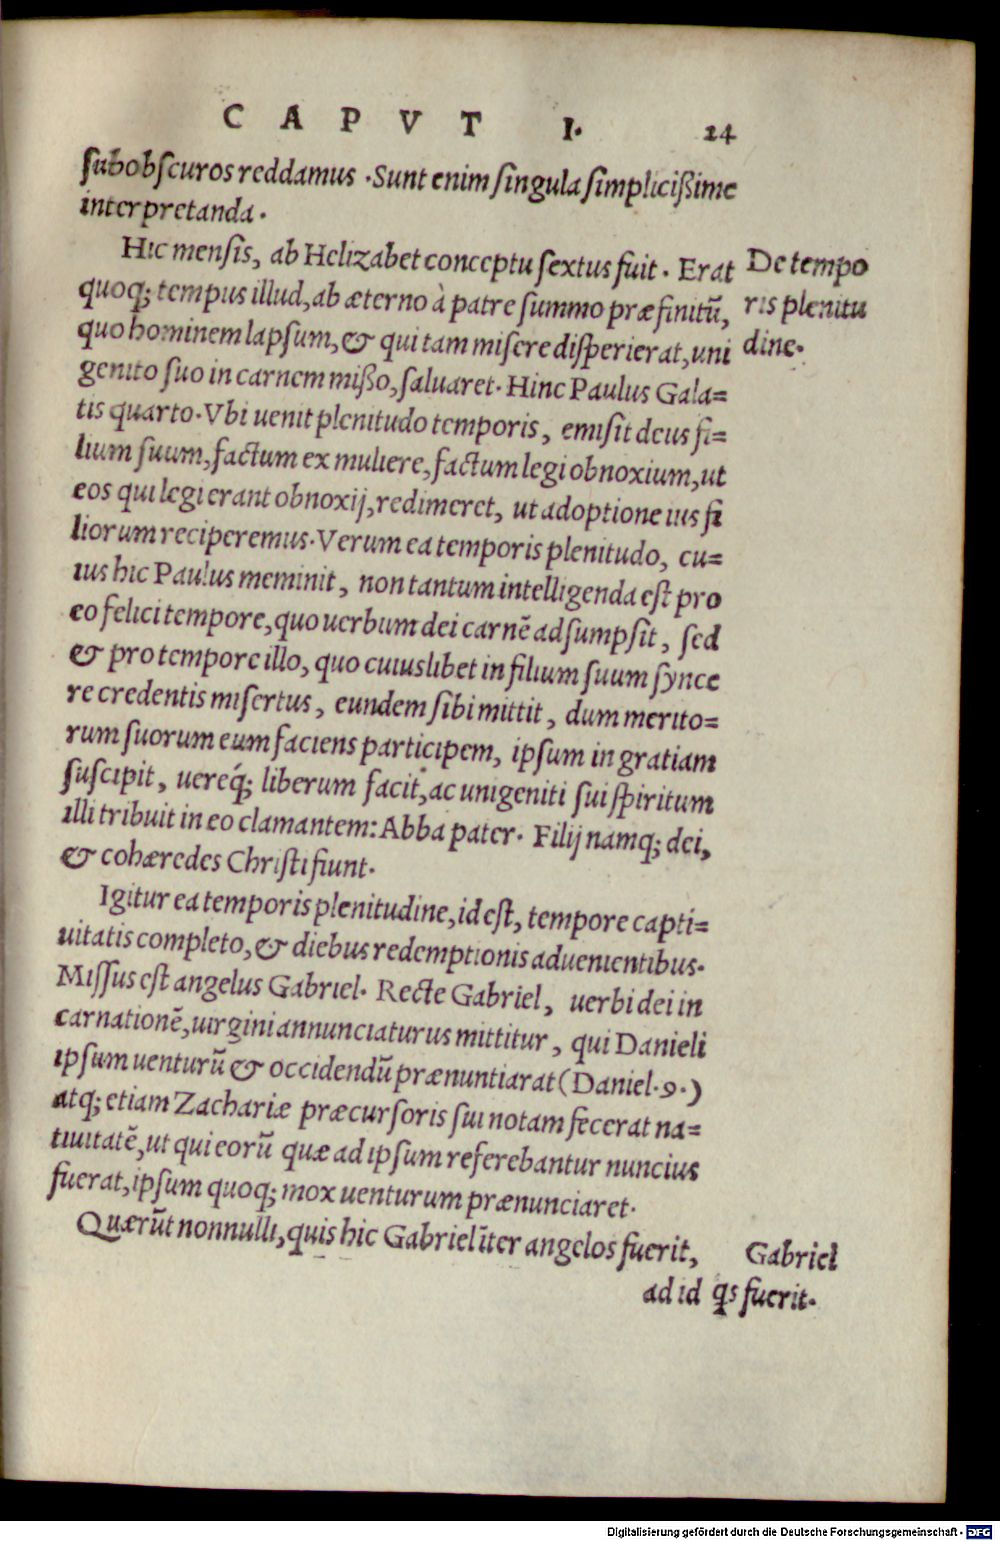 CAPVT I. 24
subobscuros reddamus. Sunt enim singula simplicißime
interpretanda.
Hic mensis, ab Helizabet conceptu sextus fuit. Erat
quoq; tempus illud, ab æterno à patre summo præfinitũ,
quo hominem lapsum, & qui tam misere disperierat, uni
genito suo in carnem mißo, saluaret. Hinc Paulus Gala=
tis quarto. Vbi uenit plenitudo temporis, emisit deus fi=
lium suum, factum ex muliere, factum legi obnoxium, ut
eos qui legi erant obnoxij, redimeret, ut adoptione ius fi
liorum reciperemus. Verum ea temporis plenitudo, cu=
ius hic Paulus meminit, non tantum intelligenda est pro
eo felici tempore, quo uerbum dei carnẽ adsumpsit, sed
& pro tempore illo, quo cuiuslibet in filium suum synce
re credentis misertus, eundem sibi mittit, dum merito=
rum suorum eum faciens participem, ipsum in gratiam
suscipit, uereq́; liberum facit, ac unigeniti sui spiritum
illi tribuit in eo clamantem: Abba pater. Filij namq; dei,
& cohæredes Christi fiunt.
Igitur ea temporis plenitudine, id est, tempore capti=
uitatis completo, & diebus redemptionis aduenientibus.
Missus est angelus Gabriel. Recte Gabriel, uerbi dei in
carnationẽ, uirgini annunciaturus mittitur, qui Danieli
ipsum uenturũ & occidendũ prænuntiarat (Daniel.9.)
atq; etiam Zachariæ præcursoris sui notam fecerat na=
tiuitatẽ, ut qui eorũ quæ ad ipsum referebantur nuncius
fuerat, ipsum quoq; mox uenturum prænunciaret.
Quærũt nonnulli, quis hic Gabriel ĩter angelos fuerit,
ad id
De tempo
ris plenitu
dine.
Gabriel
q̃s fuerit.
Digitalisierung gefördert durch die Deutsche Forschungsgemeinschaft - DFG